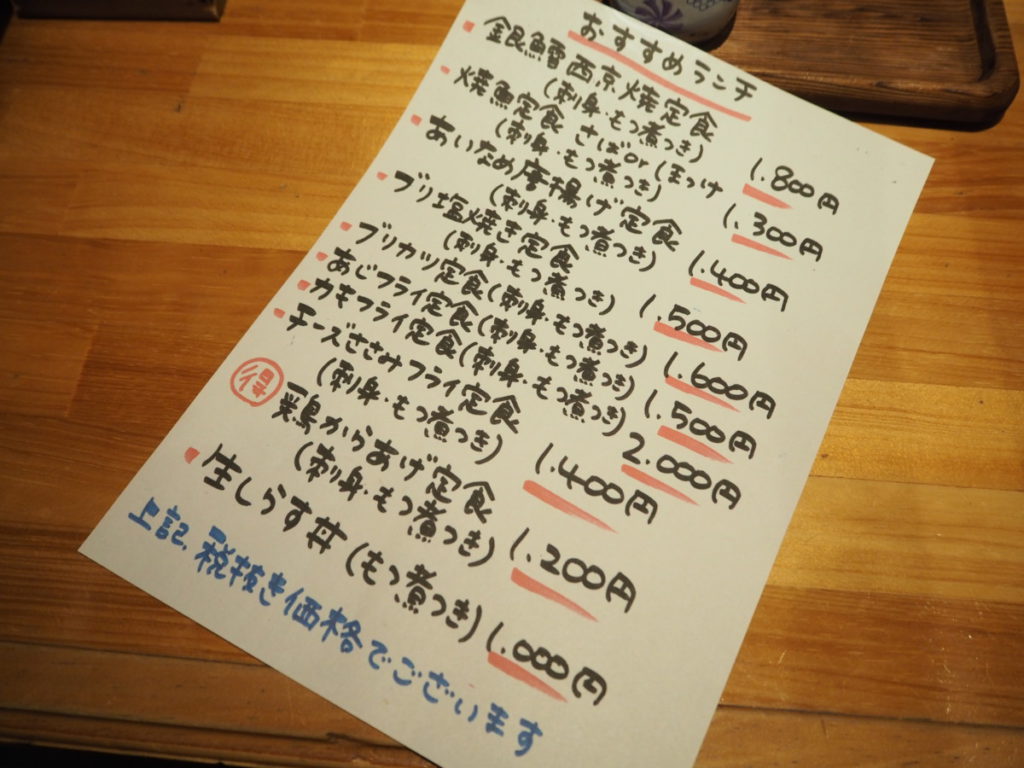 おすすめランチ
銀鱈西京焼定食
(刺身・もつ煮つき) 1.800円
焼魚定食 さばor(まっけ
(刺身・もつ煮つき) 1.300円
あいなめ唐揚げ定食
(刺身・もつ煮つき) 1.400円
ブリ塩焼き定食
(刺身・もつ煮つき) 1.500円
ブリカツ定食(刺身・もつ煮つき) 1.600円
あじフライ定食(刺身・もつ煮つき) 1.500円
カキフライ定食(刺身・もつ煮つき) 2.000円
チーズささみフライ定食
(刺身・もつ煮つき) 1.400円
得 鶏からあげ定食
(刺身・もつ煮つき) 1.200円
生しらす丼(もつ煮つき) 1.000円
上記、税抜き価格でございます